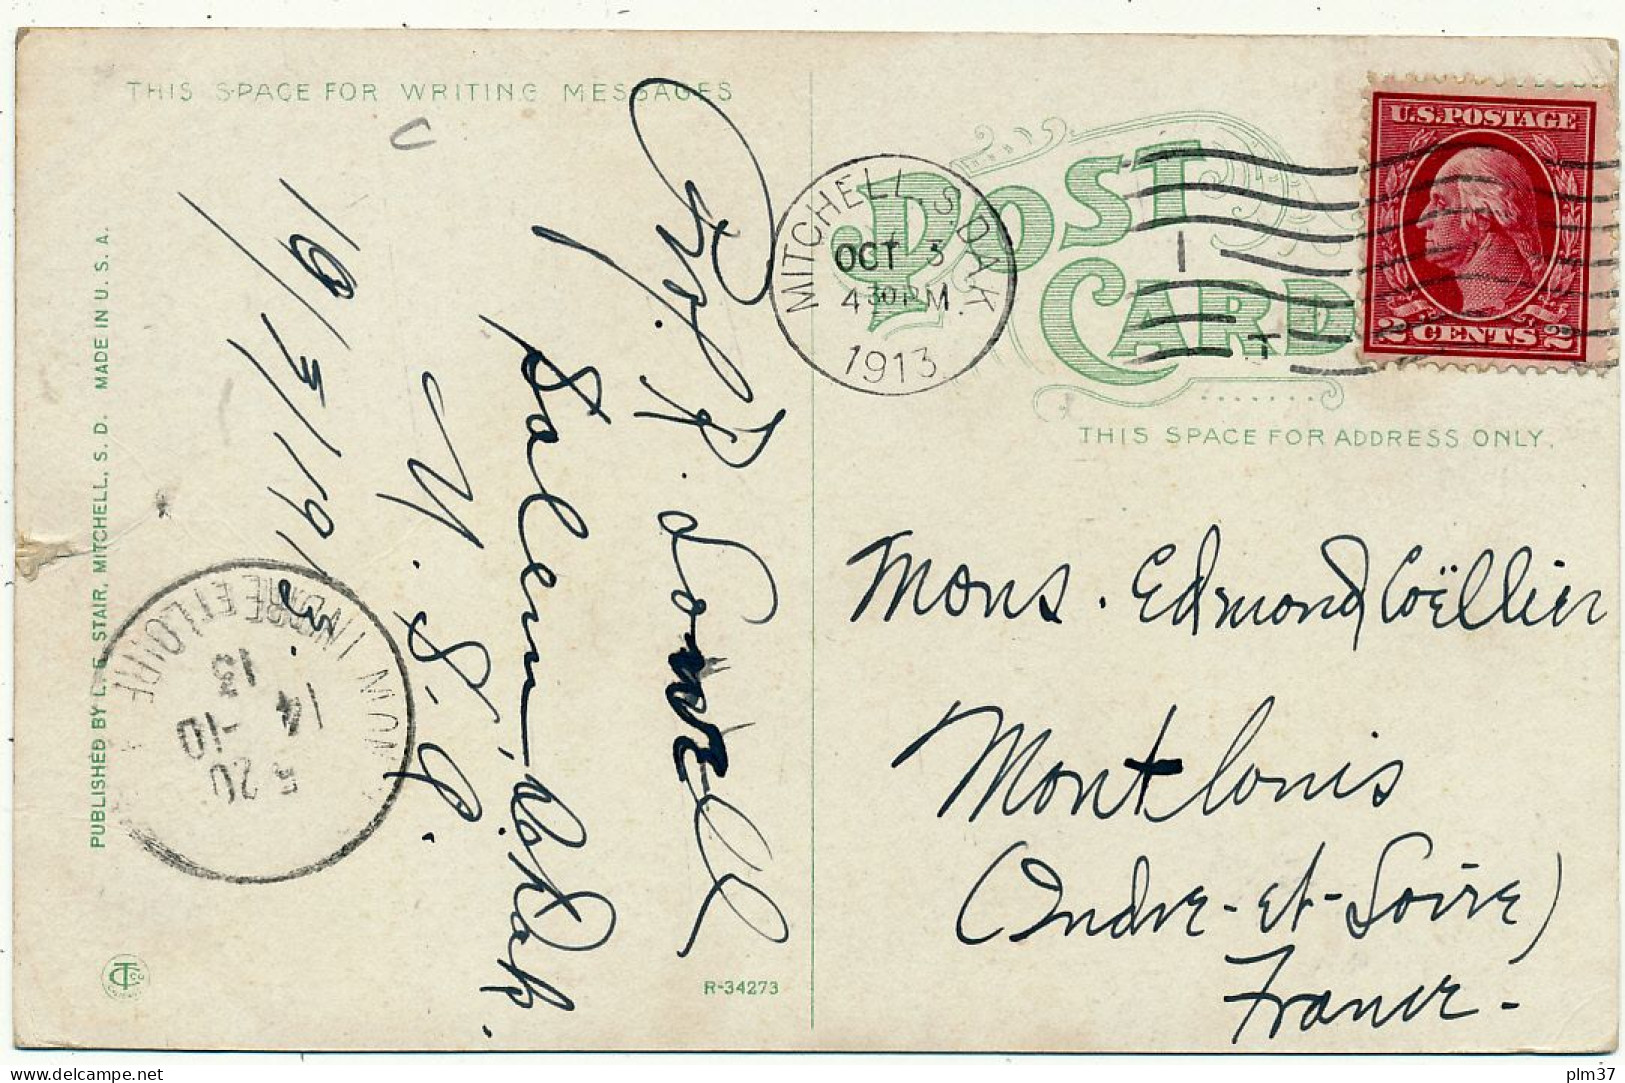 THIS SPACE FOR WRITING MESSAGES
Salem, So. Dak.
U. S. A.
10/5/1913.
PUBLISHED BY L. E. STAIR, MITCHELL, S. D. MADE IN U. S. A.
INDRE ET LOIRE
5 20
14 -10
13
R-34273
POST CARD
MITCHELL, S. DAK
OCT 5
4 30 PM.
1913
U.S. POSTAGE
2 CENTS 2
THIS SPACE FOR ADDRESS ONLY.
Mons. Edmond Coëllier
Montlouis
(Indre-et-Loire)
France-
www.delcampe.net
plm37